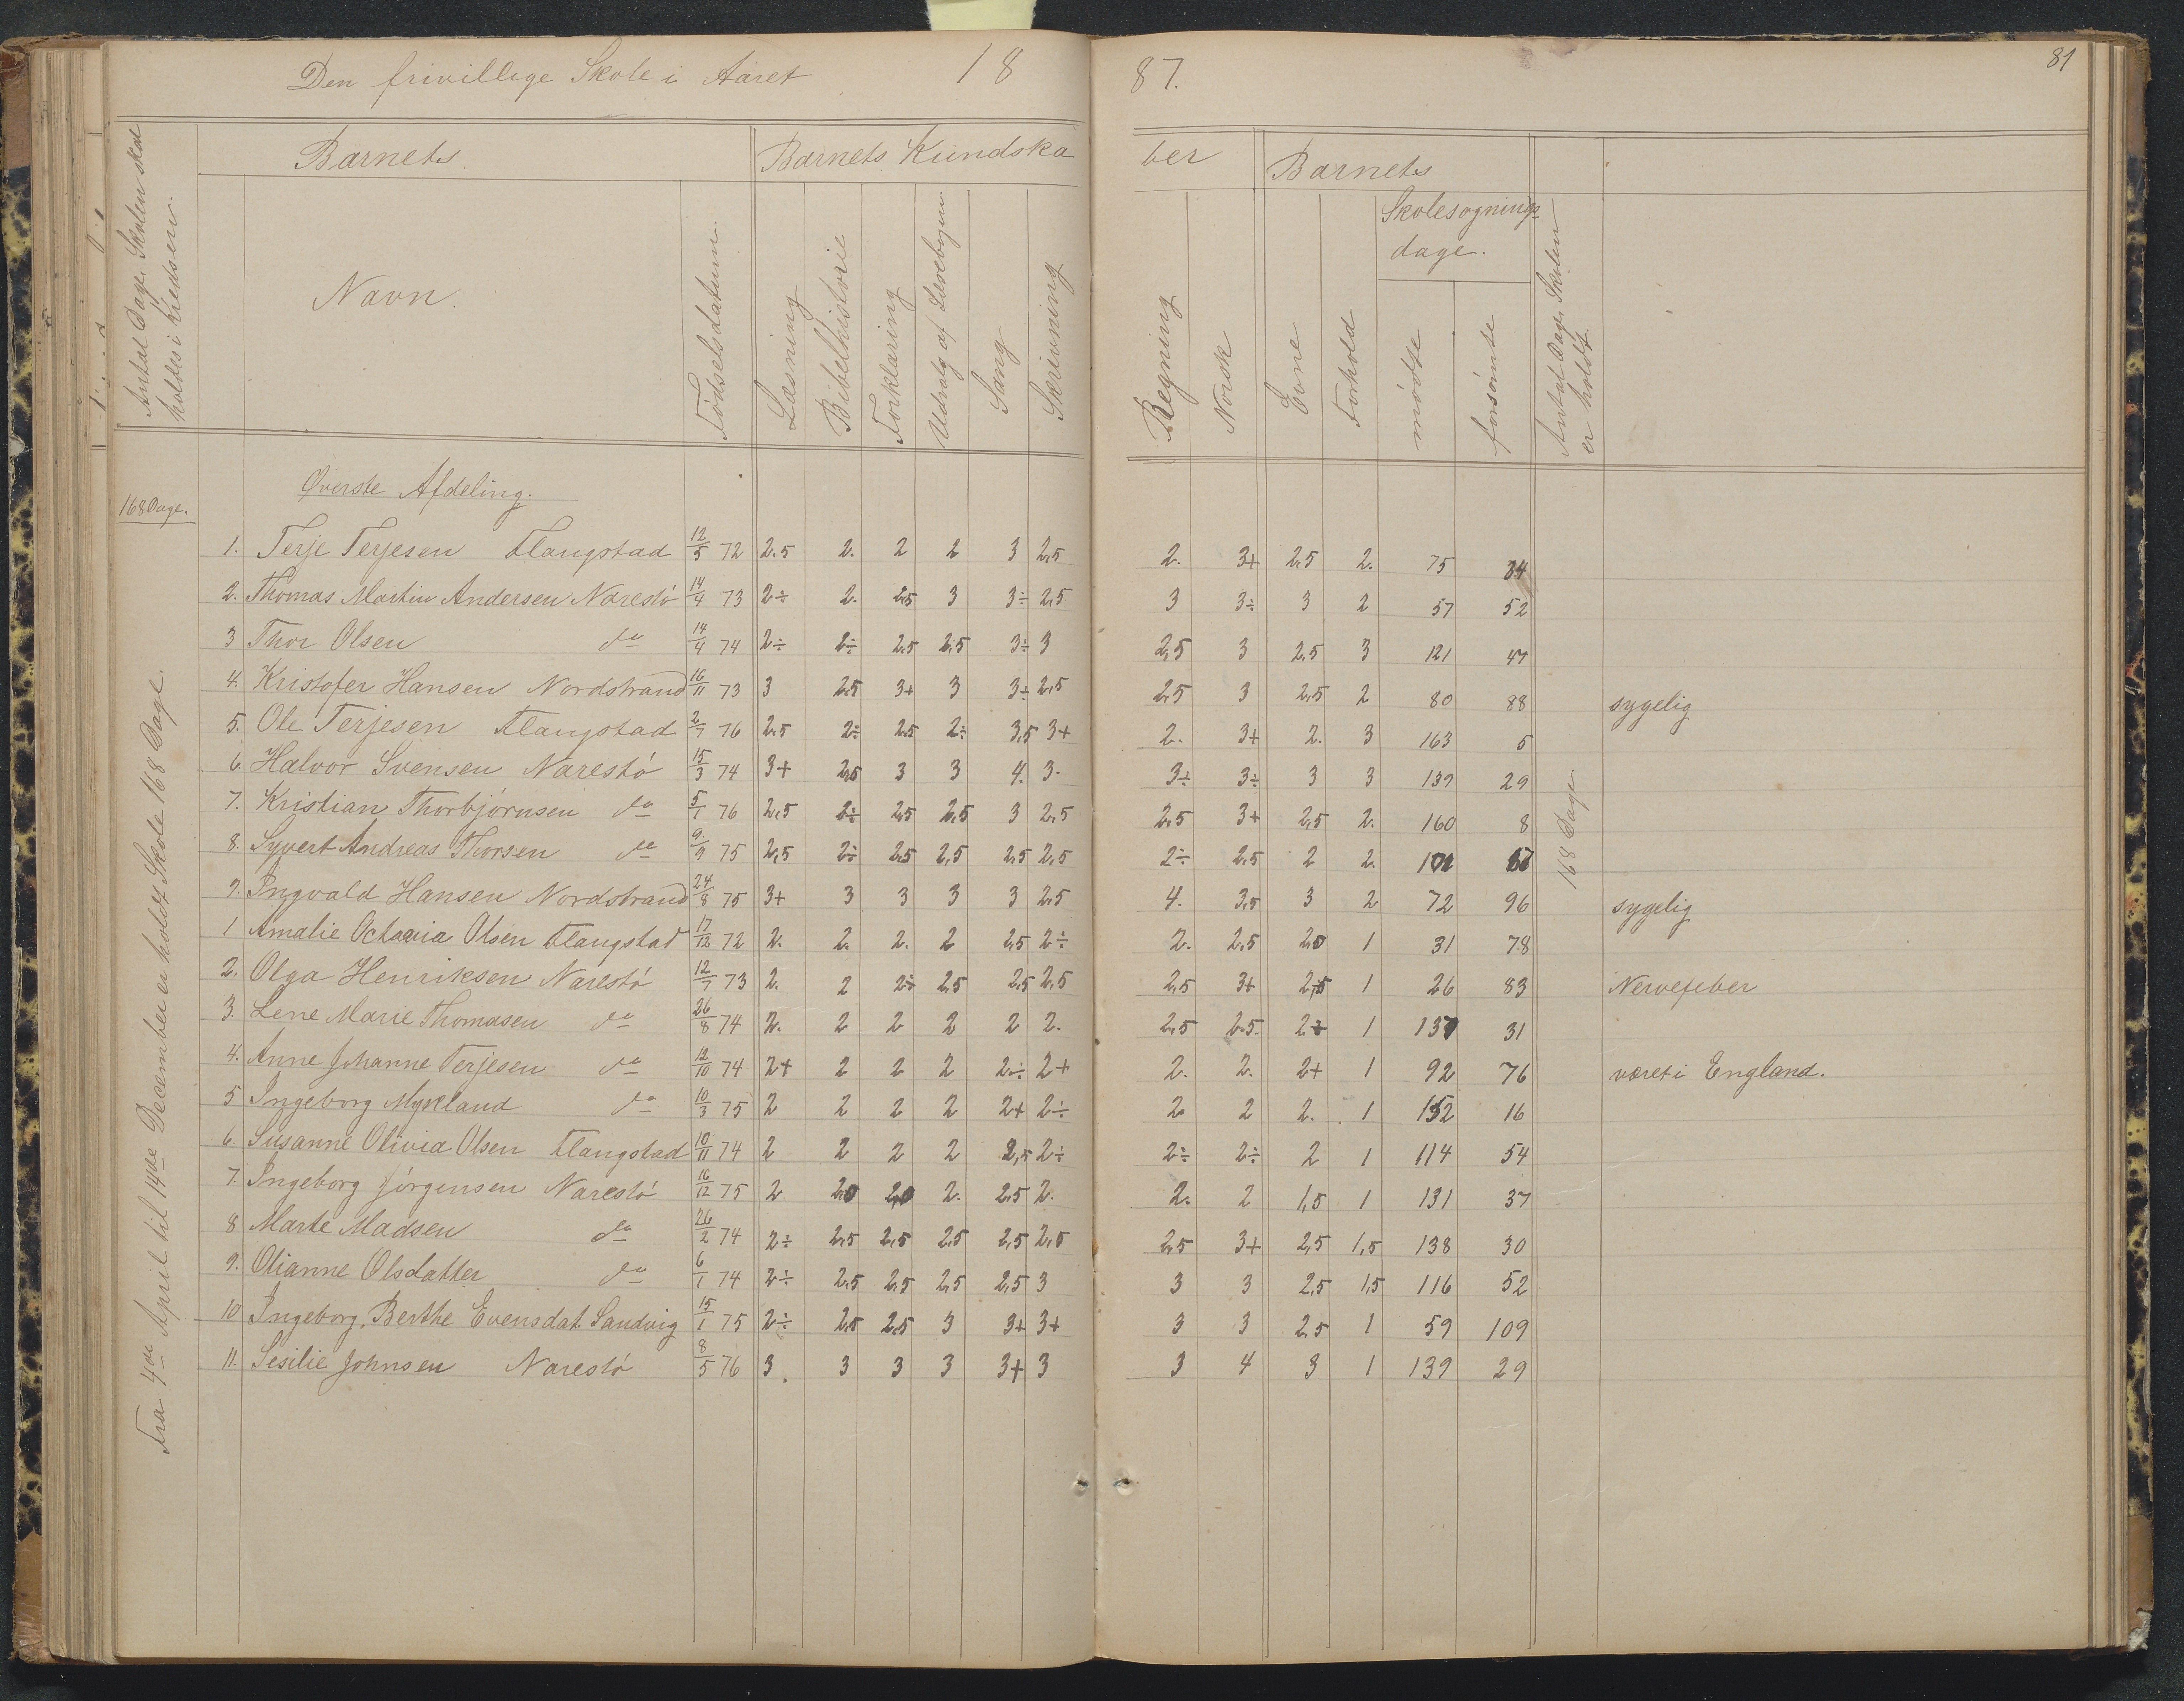 Den frivillige Skole i Aaret 1887.
81
Antal Dage, Skolen skal holdes i Kredsen.
Barnets
Barnets Kundskaber
Barnets
Navn.
Fødselsdatum.
Læsning
Bibelhistorie
Forklaring
Udvalg af Læsebogen
Sang
Skrivning
Regning
Norsk
Evne
Forhold
Skolesøgningsdage.
mødte
forsømte
Antal Dage, Skolen er holdt.
168 Dage.
Fra 4de April til 14de December er holdt Skole 168 Dage.
168 Dage
Øverste Afdeling.
1. Terje Terjesen Flangstad 12/5 72 2.5 2. 2 2 3 2,5 2. 3+ 2,5 2. 75 34
2. Thomas Martin Andersen Narestø 14/4 73 2÷ 2. 2,5 3 3÷ 2,5 3 3÷ 3 2 57 52
3 Thor Olsen do 14/4 74 2÷ 2÷ 2,5 2,5 3÷ 3 2,5 3 2,5 3 121 47
4. Kristofer Hansen Nordstrand 16/11 73 3 2,5 3+ 3 3÷ 2,5 2,5 3 2,5 2 80 88 sygelig
5. Ole Terjesen Flangstad 2/7 76 2.5 2÷ 2.5 2÷ 3,5 3+ 2. 3+ 2. 3 163 5
6. Halvor Svensen Narestø 15/3 74 3+ 2,5 3 3 4. 3. 3÷ 3÷ 3 3 139 29
7. Kristian Thorbjørnsen do 5/1 76 2,5 2÷ 2,5 2,5 3 2,5 2,5 3+ 2,5 2. 160 8
8. Syvert Andreas Thorsen do 9/9 75 2,5 2÷ 2,5 2,5 2,5 2,5 2÷ 2,5 2 2. 101 67
9. Ingvald Hansen Nordstrand 24/8 75 3+ 3 3 3 3 2,5 4. 3,5 3 2 72 96 sygelig
1 Amalie Octavia Olsen Flangstad 17/12 72 2. 2. 2. 2 2,5 2÷ 2. 2,5 2,0 1 31 78
2. Olga Henriksen Narestø 12/7 73 2. 2 2÷ 2,5 2,5 2,5 2,5 3+ 2,5 1 26 83 Nervefeber
3. Lene Marie Thomasen do 26/8 74 2. 2 2 2 2 2. 2,5 2.5. 2÷ 1 137 31
4. Anne Johanne Terjesen do 12/10 74 2+ 2 2 2 2÷ 2+ 2. 2. 2+ 1 92 76 været i England.
5 Ingeborg Myrland do 10/3 75 2 2 2 2 2+ 2÷ 2 2 2. 1 152 16
6. Susanne Olivia Olsen Flangstad 10/11 74 2 2 2 2 2,5 2÷ 2÷ 2÷ 2 1 114 54
7. Ingeborg Jørgensen Narestø 16/12 75 2 2,0 2,0 2. 2,5 2. 2. 2 1,5 1 131 37
8 Marte Madsen do 26/2 74 2÷ 2,5 2,5 2,5 2,5 2,5 2,5 3+ 2,5 1,5 138 30
9. Olianne Olsdatter do 6/1 74 2÷ 2,5 2,5 2,5 2,5 3 3 3 2,5 1,5 116 52
10 Ingeborg Berthe Evensdat. Sandvig 15/1 75 2÷ 2,5 2,5 3 3+ 3+ 3 3 2,5 1 59 109
11. Sesilie Johnsen Narestø 8/5 76 3. 3 3 3 3+ 3 3 4 3 1 139 29